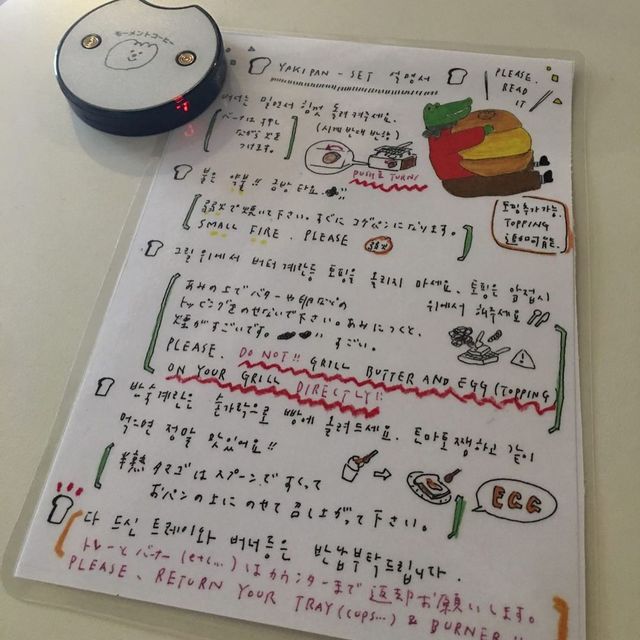 モーメントコーヒー
YAKIPAN - SET 설명서
PLEASE. READ IT
버너는 밀면서 힘껏 돌려주세요.
(시계 반대 방향)
バーナは押し
ながら火を
つけます。
PUSH & TURN!
불은 약불!! 금방 타요.
弱火で焼いて下さい。すぐにコゲパンになります。
SMALL FIRE. PLEASE
弱火
토핑추가가능.
TOPPING
追加可能.
그릴 위에서 버터계란등 토핑을 올리지 마세요. 토핑은 앞접시
위에서 해주세요
あみの上でバターや卵などの
トッピングをのせないで下さい。あみにつくと、
煙がすごいです。すごい。
PLEASE. DO NOT!! GRILL BUTTER AND EGG (TOPPING
ON YOUR GRILL DIRECTLY!!
반숙계란은 숟가락으로 빵에 올려드세요. 토마토쨈하고 같이
먹으면 정말 맛있어요!!
半熟タマゴはスプーンですくって
おパンの上にのせて召し上がって下さい。
EGG
다 드신 트레이와 버너등은 반납부탁드립니다.
トレーとバーナー(etc...)はカウンターまで返却お願いします。
PLEASE. RETURN YOUR TRAY (CUPS...) & BURNER!!